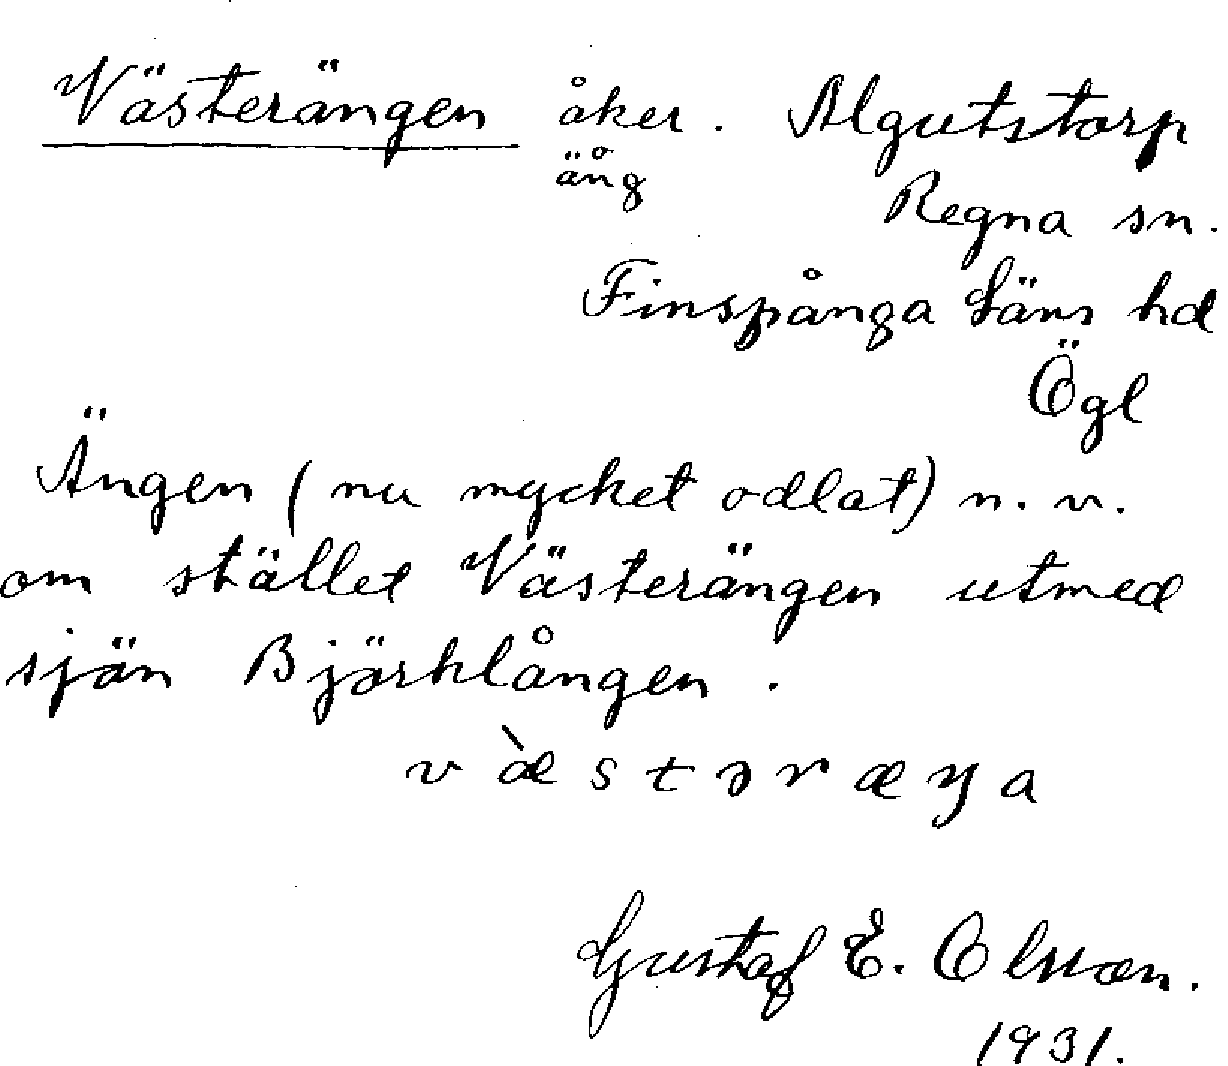 Västerängen åker. Algutstorp
äng Regna sn.
Finspånga Läns hd
Ögl
Ängen (nu mycket odlat) n. v.
om stället Västerängen utmed
sjön Björklången.
v æ̀ s t ə r æ ŋ a
Gustaf E. Olsson.
1931.